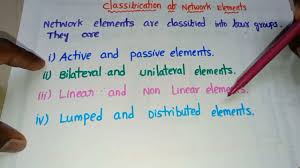 Classification of Network Elements
Network elements are classified into four groups.
They are
i) Active and passive elements.
ii) Bilateral and unilateral elements.
iii) Linear and Non Linear elements.
iv) Lumped and Distributed elements.